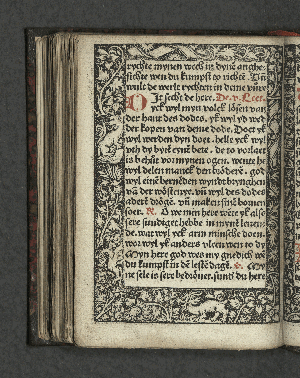 rychte mynen wech in dyne anghe-
sichte wen du kumpst to richte. Un
wult de werlt rychten in dame vure
Dit secht de here. De. v. Leer.
yck wyl myn volck lösen van
der hant des dodes. yk wyl yd wed
der kopen van deme dode. Doet yk
wyl werden dyn doet. helle yck wyl
wesen dyn byte. de to
is vor mynen ogen. wente he
wyl delen manck den bröderē. god
wyl eine bernēden wynt bringhen
van der wöstenye. un wyl des dodes
adere drögē. un maken sine bornen
soer. R. O we men here wete yk also
vele sundiget hebbe in myne leuen-
de. wat wyl yck arm minsche doen.
wor wyl yk anders vleen wen to dy
Myn here god wes my gnedich wē
du kumpst in de lesten dage. My
ne sele is sere bedrouet. sund du here